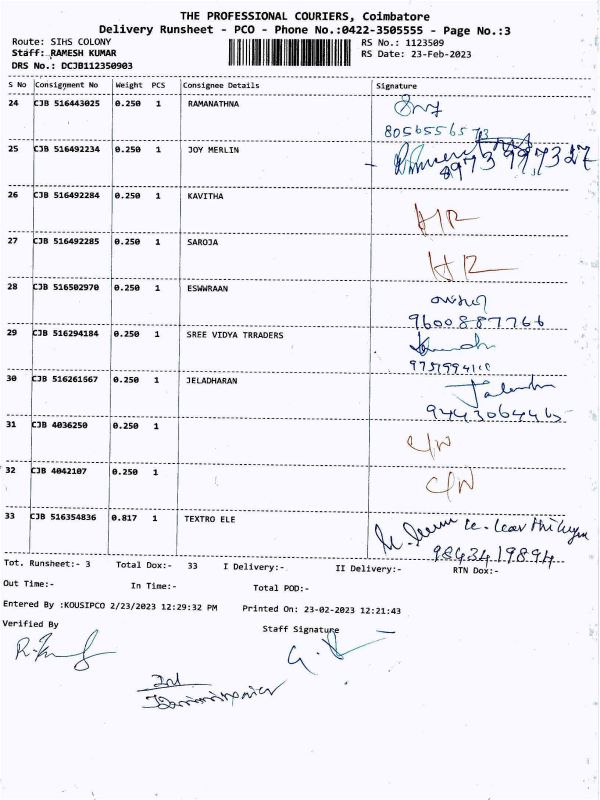 THE PROFESSIONAL COURIERS, Coimbatore
Delivery Runsheet - PCO - Phone No.:0422-3505555 - Page No.:3
Route: SIHS COLONY RS No.: 1123509
Staff: RAMESH KUMAR RS Date: 23-Feb-2023
DRS No.: DCJB112350903
S No Consignment No Weight PCS Consignee Details Signature
24 CJB 516443025 0.250 1 RAMANATHNA
8056556573
25 CJB 516492234 0.250 1 JOY MERLIN
8973997327
26 CJB 516492284 0.250 1 KAVITHA
HR
27 CJB 516492285 0.250 1 SAROJA
HR
28 CJB 516502970 0.250 1 ESWWRAAN
9600887766
29 CJB 516294184 0.250 1 SREE VIDYA TRRADERS
9751994110
30 CJB 516261667 0.250 1 JELADHARAN
9443064465
31 CJB 4036250 0.250 1 C/N
32 CJB 4042107 0.250 1 C/N
33 CJB 516354836 0.817 1 TEXTRO ELE
9843419894
Tot. Runsheet:- 3 Total Dox:- 33 I Delivery:- II Delivery:- RTN Dox:-
Out Time:- In Time:- Total POD:-
Entered By :KOUSIPCO 2/23/2023 12:29:32 PM Printed On: 23-02-2023 12:21:43
Verified By Staff Signature